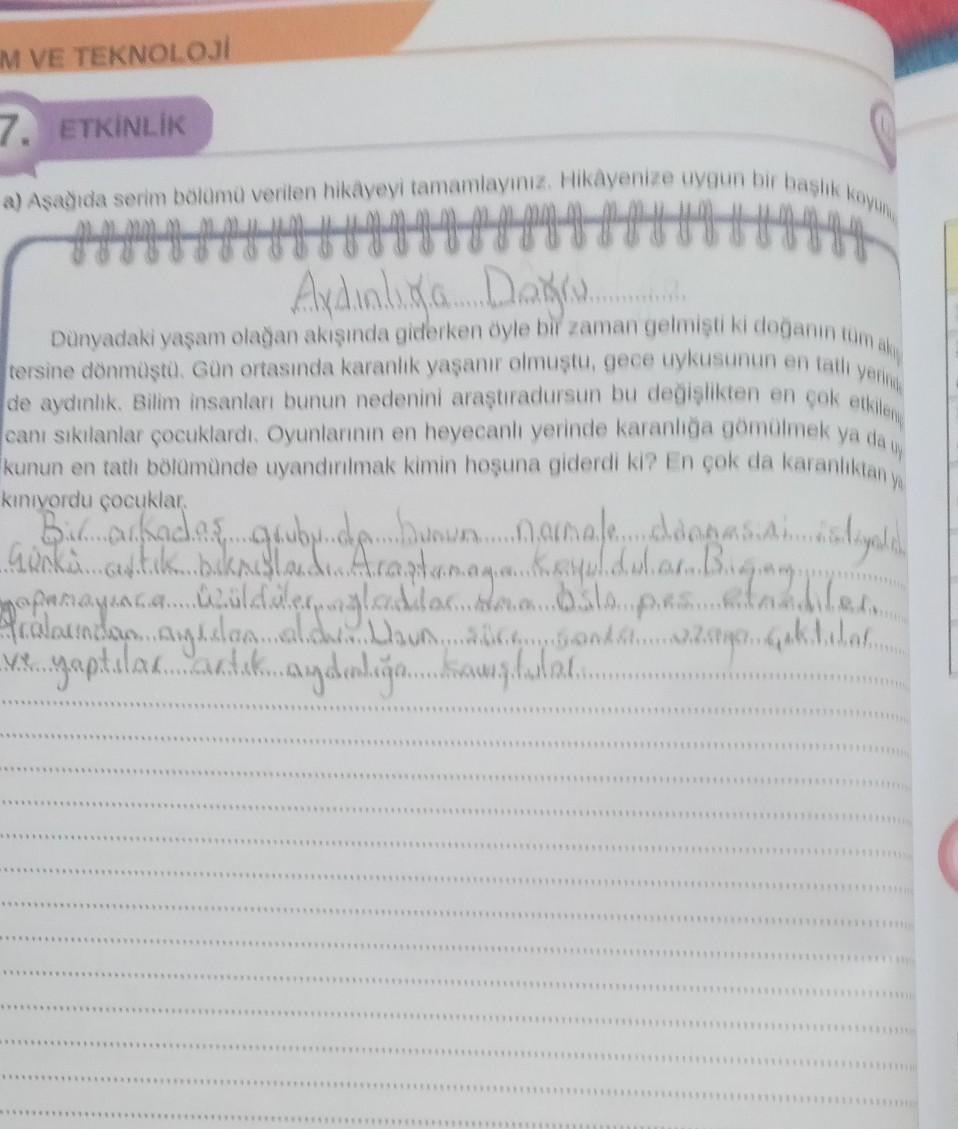 M VE TEKNOLOJİ
7. ETKİNLİK
a) Aşağıda serim bölümü verilen hikâyeyi tamamlayınız. Hikâyenize uygun bir başlık koyunu
Aydınlığa Doğru
Dünyadaki yaşam olağan akışında giderken öyle bir zaman gelmişti ki doğanın tüm akış
tersine dönmüştü. Gün ortasında karanlık yaşanır olmuştu, gece uykusunun en tatlı yerinde
de aydınlık. Bilim insanları bunun nedenini araştıradursun bu değişlikten en çok etkileni
canı sıkılanlar çocuklardı. Oyunlarının en heyecanlı yerinde karanlığa gömülmek ya da uy
kunun en tatlı bölümünde uyandırılmak kimin hoşuna giderdi ki? En çok da karanlıktan ya
kınıyordu çocuklar.
Bir arkadaş grubu da bunun normale dönmesini istiyordu
Günkü artık bıkmışlardı. Araştırmaya koyuldular. Birşey
yapamayınca üzüldüler, ağladılar ama asla pes etmediler.
Aralarından ayrılan oldu. Uzun süre sonra uzaya çıktılar
ve yaptılar artık aydınlığa kavuştular.